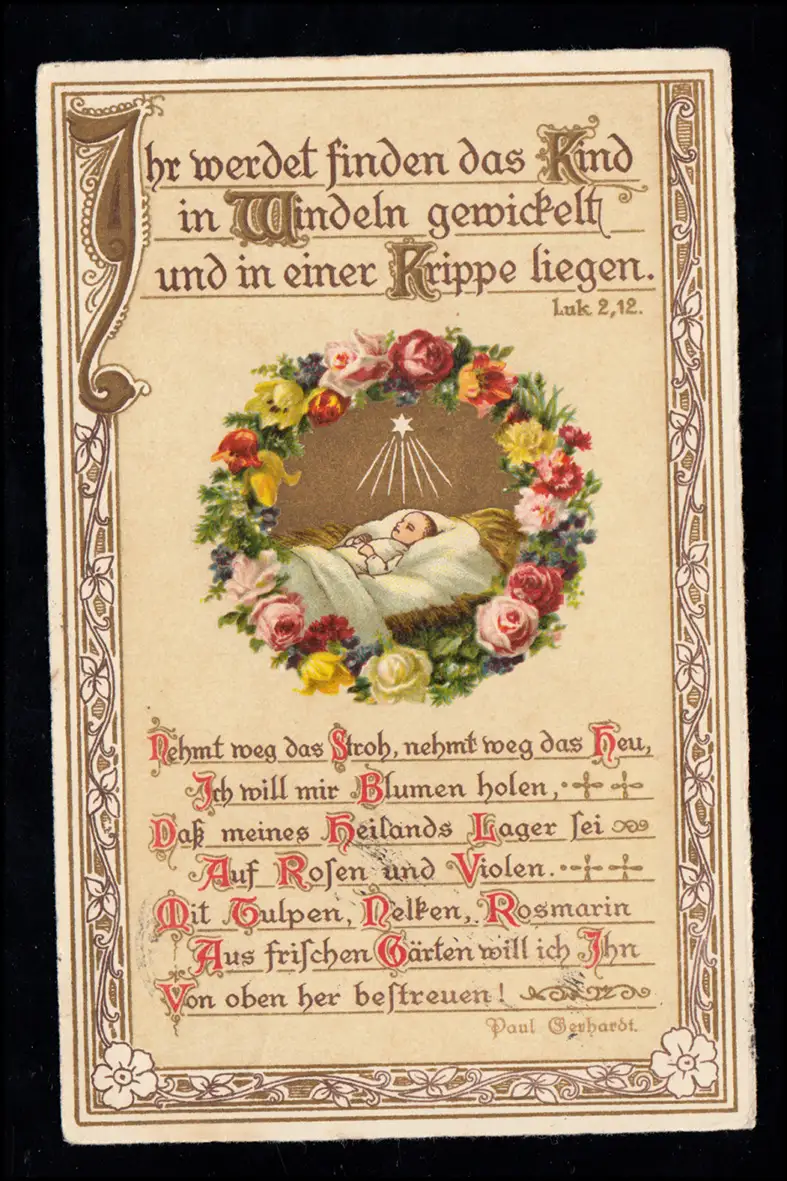 Ihr werdet finden das Kind
in Windeln gewickelt
und in einer Krippe liegen.
Luk. 2,12.
Nehmt weg das Stroh, nehmt weg das Heu,
Ich will mir Blumen holen,
Daß meines Heilands Lager sei
Auf Rosen und Violen.
Mit Tulpen, Nelken, Rosmarin
Aus frischen Gärten will ich Ihn
Von oben her bestreuen!
Paul Gerhardt.